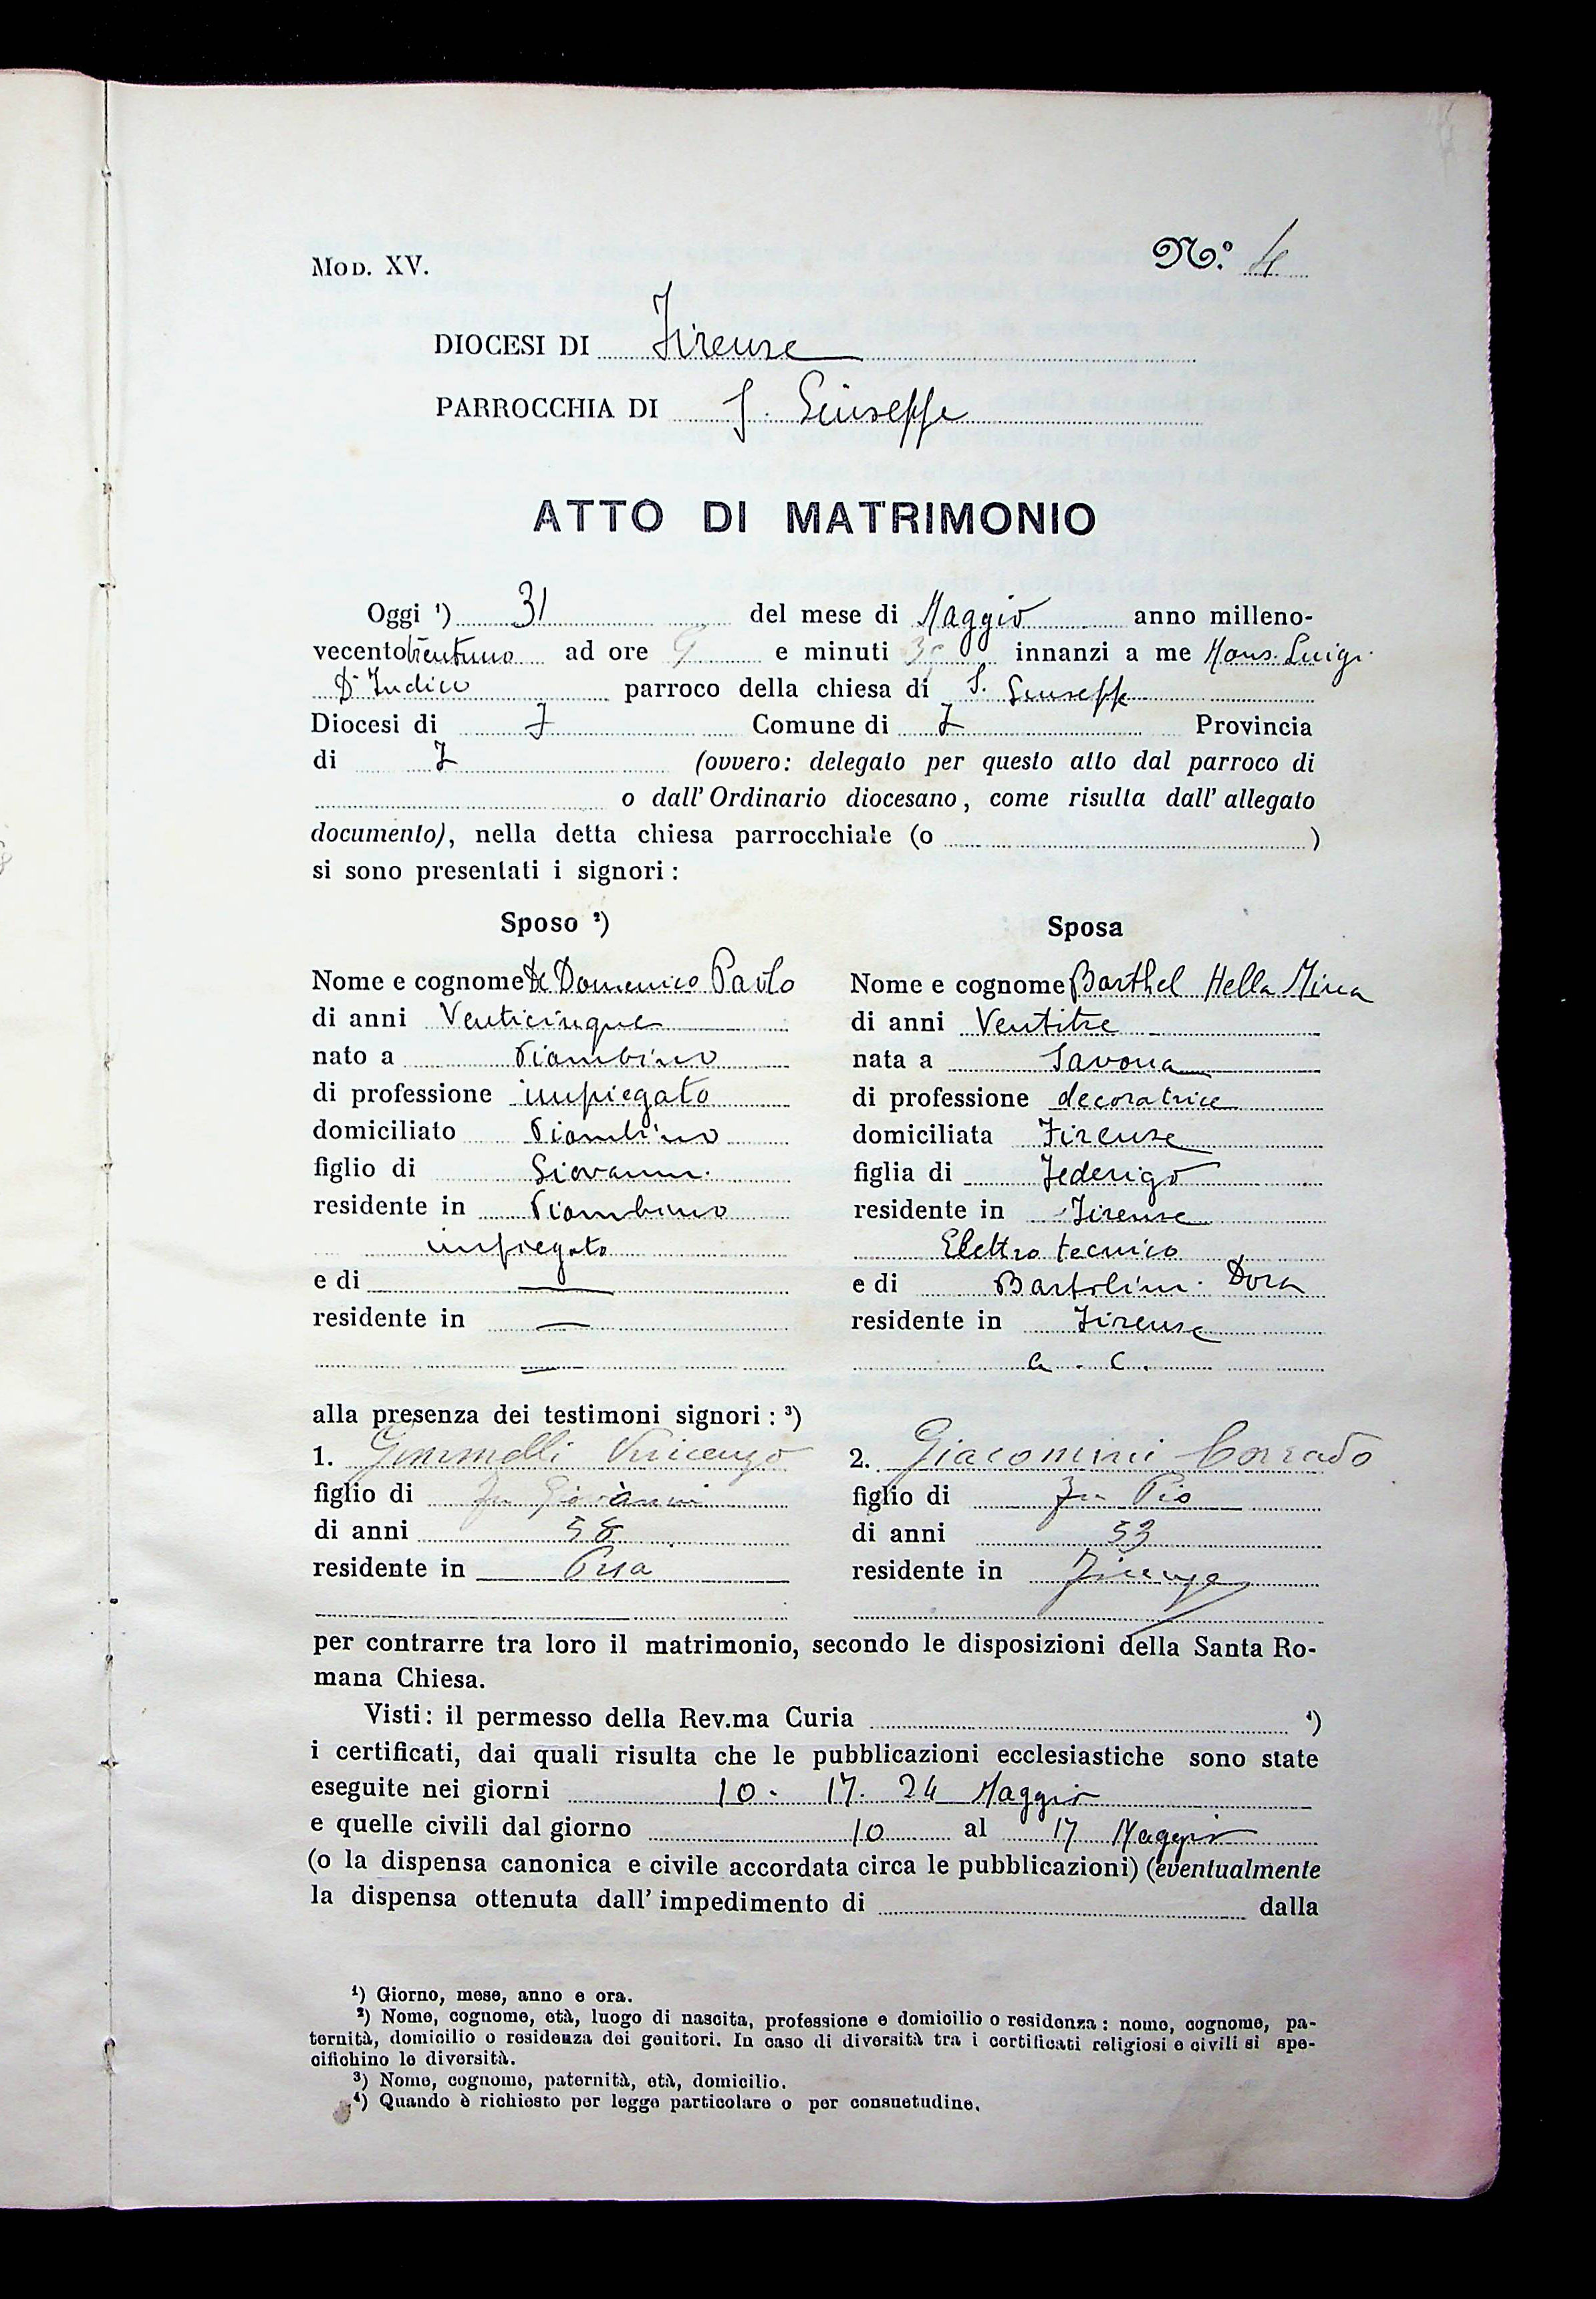 MOD. XV.
N.º 4
DIOCESI DI Firenze
PARROCCHIA DI S. Giuseppe
ATTO DI MATRIMONIO
Oggi ¹) 31 del mese di Maggio anno milleno-
vecento trentuno ad ore 9 e minuti 30 innanzi a me Mons. Luigi
D'Indico parroco della chiesa di S. Giuseppe
Diocesi di F Comune di F Provincia
di F (ovvero: delegato per questo atto dal parroco di
o dall' Ordinario diocesano, come risulta dall' allegato
documento), nella detta chiesa parrocchiale (o )
si sono presentati i signori:
Sposo ²)
Nome e cognome De Domenico Paolo
di anni Venticinque
nato a Piombino
di professione impiegato
domiciliato Piombino
figlio di Giovanni
residente in Piombino
impiegato
e di —
residente in —
—
Sposa
Nome e cognome Barthel Hella Mina
di anni Ventitre
nata a Savona
di professione decoratrice
domiciliata Firenze
figlia di Federigo
residente in Firenze
Elettro tecnico
e di Bartolini Dora
residente in Firenze
a. c.
alla presenza dei testimoni signori: ³)
1. Gemmelli Vincenzo
figlio di fu Giovanni
di anni 58
residente in Pisa
2. Giacomini Corrado
figlio di fu Pio
di anni 53
residente in Firenze
per contrarre tra loro il matrimonio, secondo le disposizioni della Santa Ro-
mana Chiesa.
Visti: il permesso della Rev.ma Curia ⁴)
i certificati, dai quali risulta che le pubblicazioni ecclesiastiche sono state
eseguite nei giorni 10. 17. 24 Maggio
e quelle civili dal giorno 10 al 17 Maggio
(o la dispensa canonica e civile accordata circa le pubblicazioni) (eventualmente
la dispensa ottenuta dall' impedimento di dalla
¹) Giorno, mese, anno e ora.
²) Nome, cognome, età, luogo di nascita, professione e domicilio o residenza: nome, cognome, pa-
ternità, domicilio o residenza dei genitori. In caso di diversità tra i certificati religiosi e civili si spe-
cifichino le diversità.
³) Nome, cognome, paternità, età, domicilio.
⁴) Quando è richiesto per legge particolare o per consuetudine.